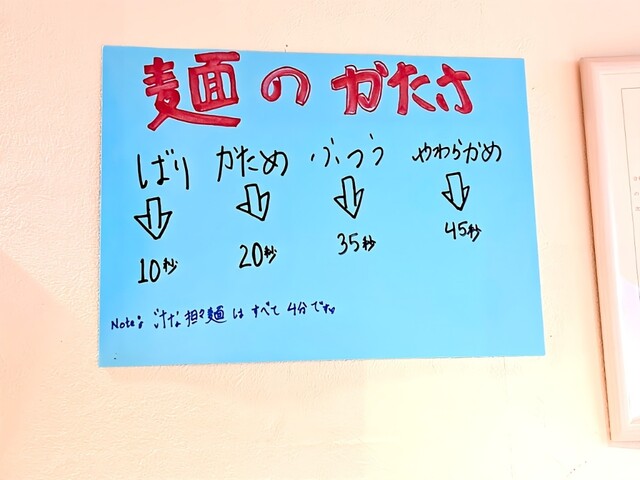 麺のかたさ
ばり かため ふつう やわらかめ
10秒 20秒 35秒 45秒
Note: 汁な担々麺はすべて4分です。